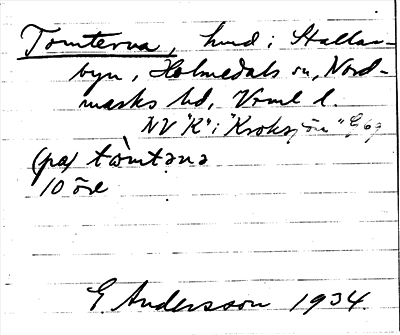 Tomterna, hmd i Stallar-
byn, Holmedals sn, Nord-
marks hd, Vrml l.
NV "K" i "Kroksjön" E/69
(på) tòmtəṇa
10 öre
E. Andersson 1934.